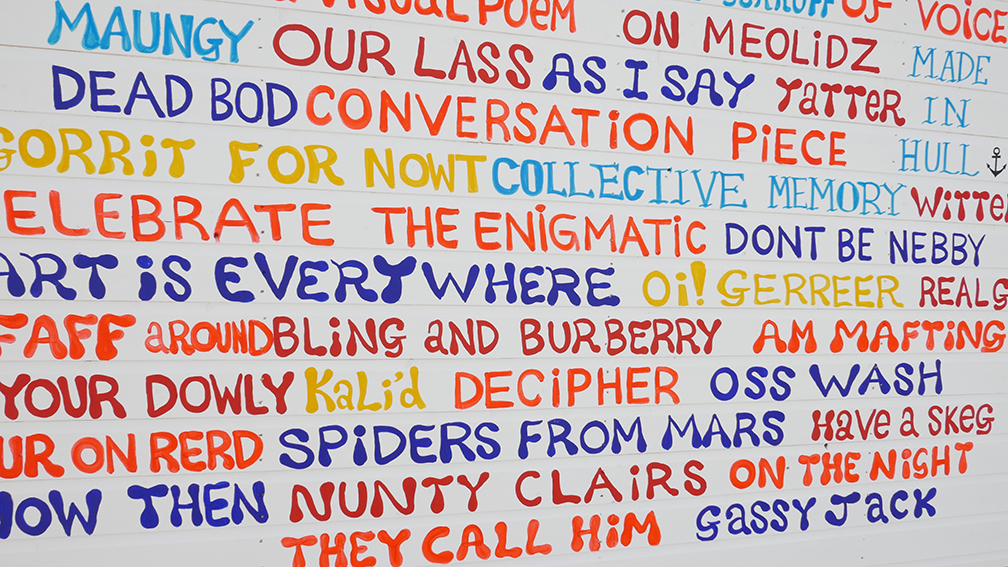 VISUAL POEM OF VOICE
MAUNGY OUR LASS ON MEOLiDZ MADE
DEAD BOD AS I SAY YaTTER IN
GORRiT FOR NOWT CONVERSATiON PiECE HULL
ELEBRATE THE ENiGMATiC COLLECTIVE MEMORY WiTTE
ART iS EVERYWHERE DONT BE NEBBY
FAFF aROUND BLiNG aND BURBERRY Oi! GERREER REAL G
YOUR DOWLY KaLi'd DECiPHER AM MAFTiNG
UR ON RERD SPiDERS FROM MARS OSS WASH
NOW THEN NUNTY CLAiRS HaVe a SKEG
THEY CALL HiM ON THE NiGHT
GaSSY JaCK